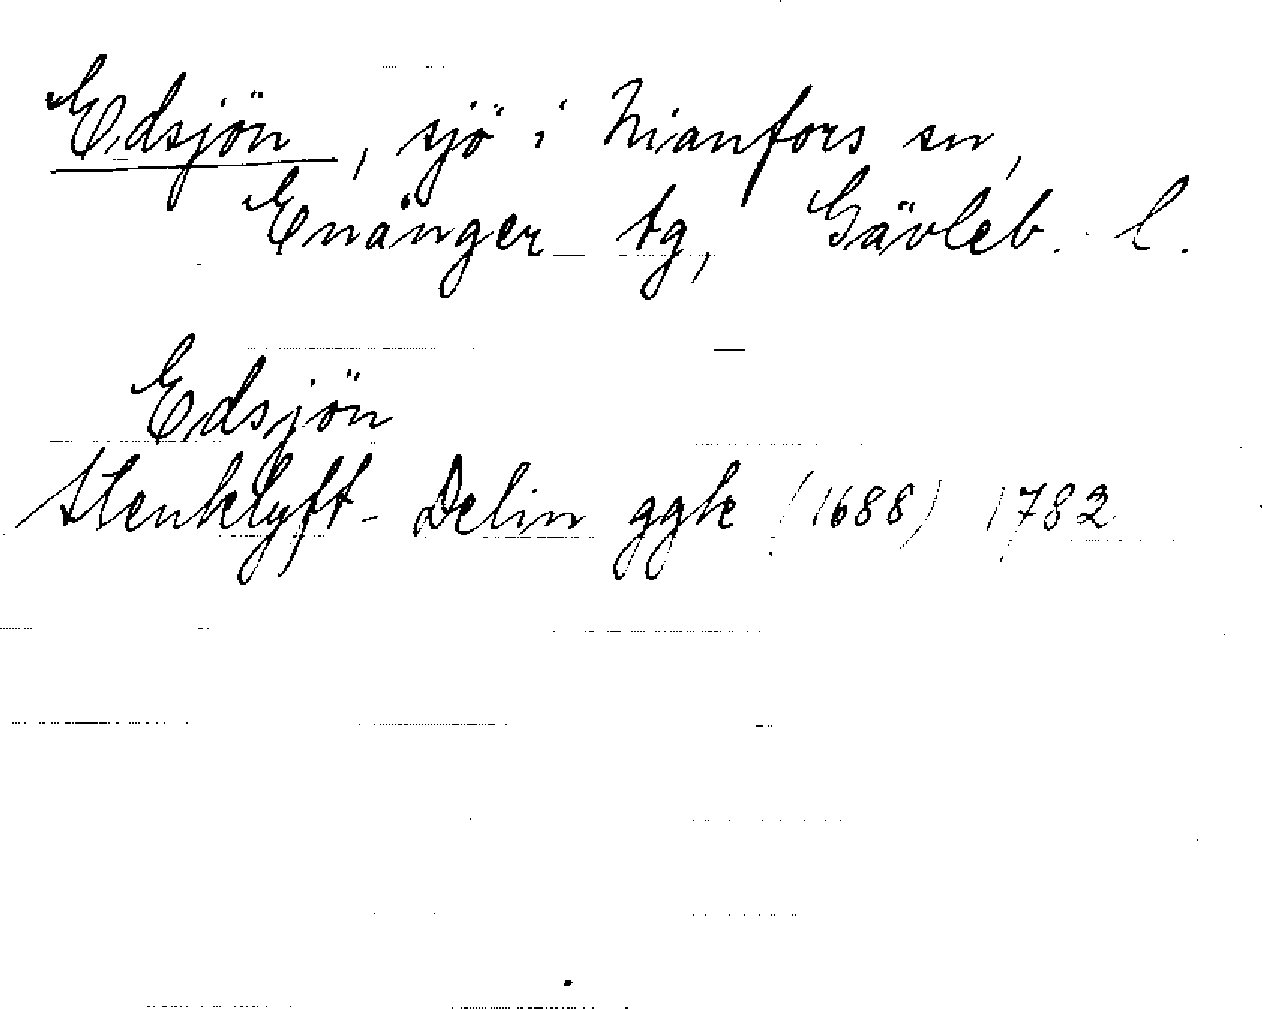 Edsjön, sjö i Nianfors sn,
Enånger tg, Gävleb. l.
Edsjön
Stenklyft-Delin ggk (1688) 1782